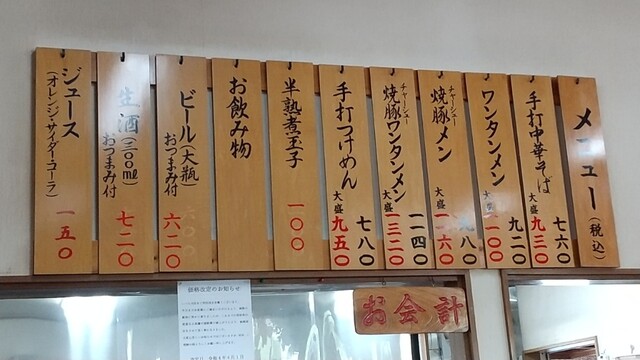 メニュー(税込)
手打中華そば 七六〇
大盛 九三〇
ワンタンメン 九二〇
大盛 一一〇〇
焼豚メン 九八〇
チャーシュー
大盛 一一六〇
焼豚ワンタンメン 一一四〇
チャーシュー
大盛 一三二〇
手打つけめん 七八〇
大盛 九五〇
半熟煮玉子 一〇〇
お飲み物
ビール(大瓶) 六二〇
おつまみ付
生酒(300ml) 七二〇
おつまみ付
ジュース 一五〇
(オレンジ・サイダー・コーラ)
価格改定のお知らせ
お会計